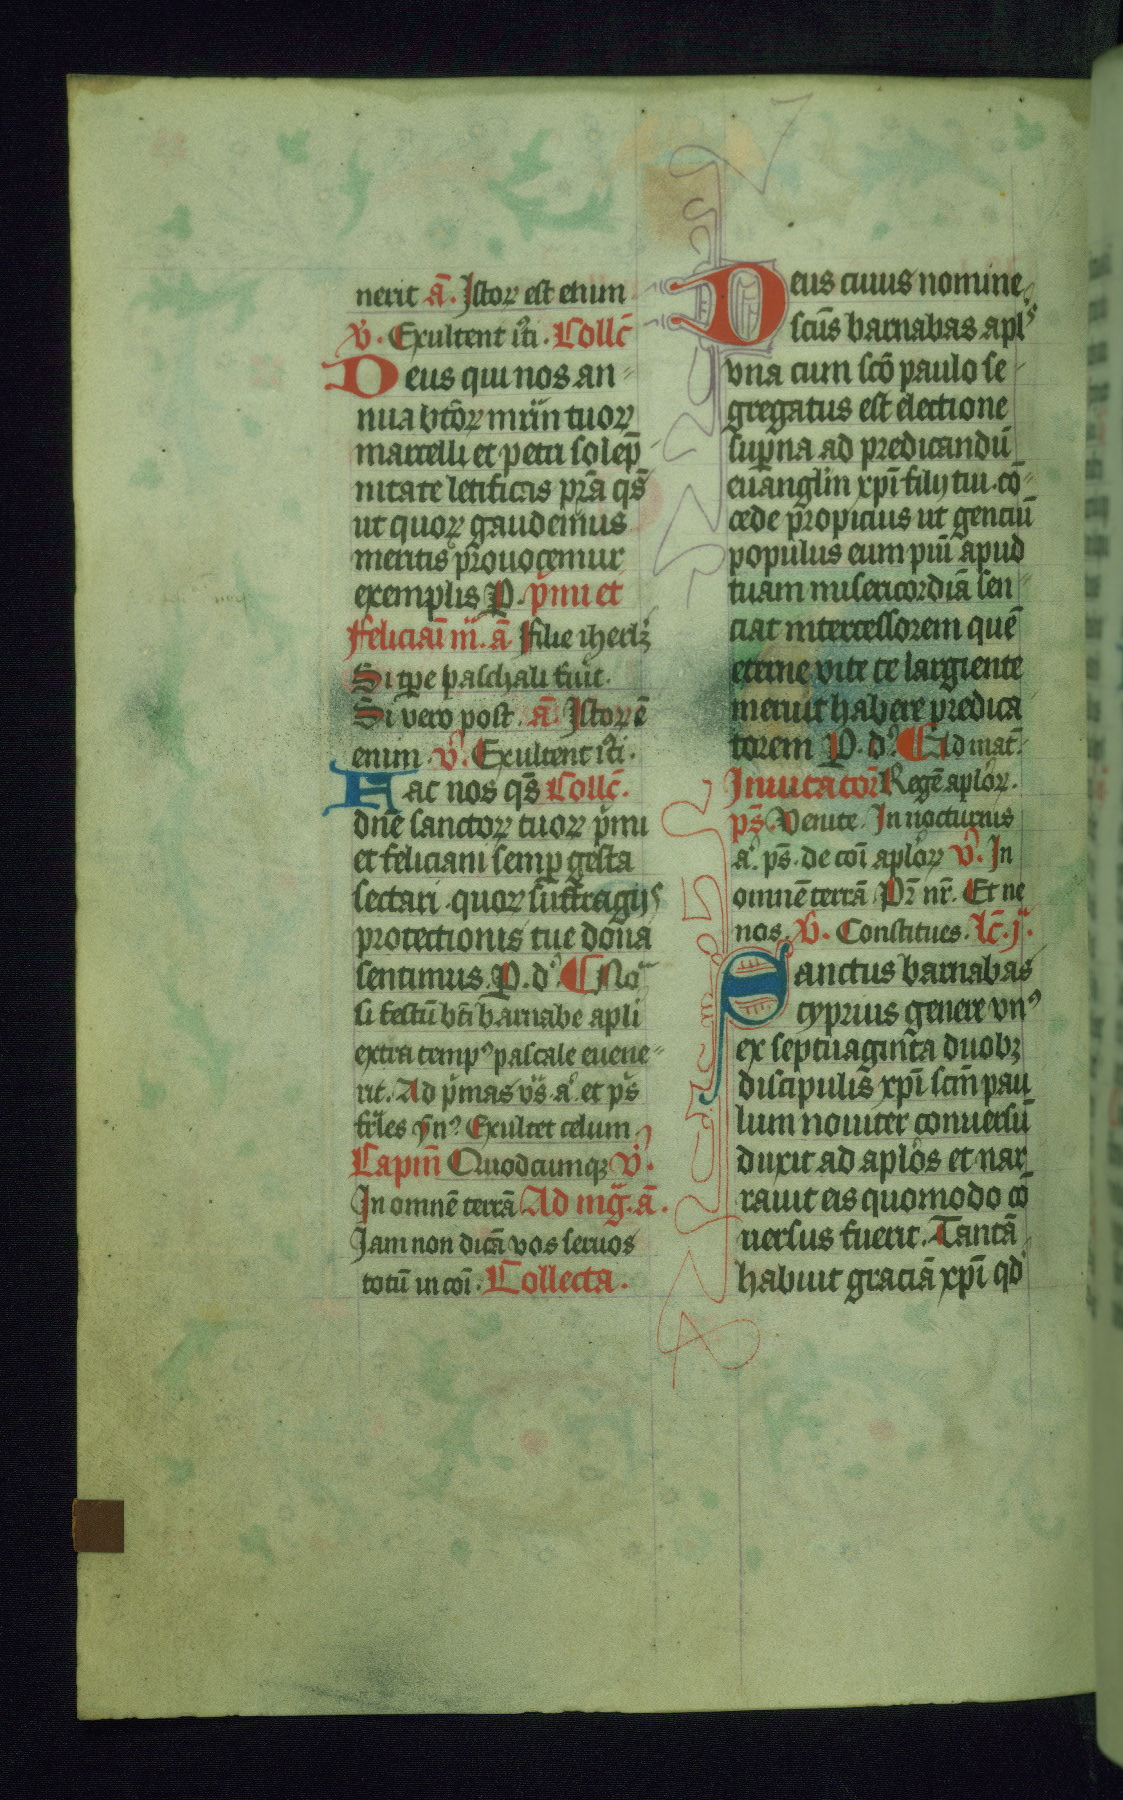 nerit ā. Istoꝝ est enim
v̄. Exultent iti. Collc̄
Deus qui nos an-
nua btōꝝ mrīn tuoꝝ
marcelli et petri solēp
nitate letificas prā qs̄
ut quoꝝ gaudemus
meritis prouocemur
exemplis P. p̄mi et
feliciāi m̄. ā filie iherlꝫ
Si tpe paschali fuit.
Si vero post. ā. Istoꝝ ē
enim. v̄. Exultent iti.
Fac nos qs̄ Collc̄.
dnē sanctoꝝ tuoꝝ p̄mi
et feliciani semp̱ gesta
sectari. quoꝝ suffragijs
protectionis tue dona
sentimus. P. d. No
si festū bti barnabe apli
extra tempꝰ pascale euene-
rit. Ad p̄mas vs̄. a. et ps
friles ynꝰ Exultet celum
Capīn Quodcumqꝫ v̄.
In omnē terrā Ad mḡ. ā.
Iam non dicā vos seruos
totū in coi. Collecta.
Deus cuius nomine
scūs barnabas aplꝰ
vna cum scō paulo se-
gregatus est electione
sup̱na ad predicandū
euānglīn xp̄i filij tui. cō-
cede propicius ut genciū
populus eum piū apud
tuam misericordiā sen
ciat intercessorem quē
eterne vite te largiente
meruit habere predica
torem P. d. Ad mat̄.
Inuitatoī Regē aploꝝ.
ps̄ Venite. In nocturnis
a. ps̄. de coī aploꝝ v̄. In
omnē terrā Pr̄ nr̄. Et ne
nos. v̄. Constitues. lc̄. j.
Sanctus barnabas
cyprius genere vnꝰ
ex septuaginta duobꝫ
discipulis xp̄i scīn pau
lum nouiter conuersū
duxit ad aplos et nar
rauit eis quomodo cō
uersus fuerit. Tantā
habuit graciā xp̄i qd